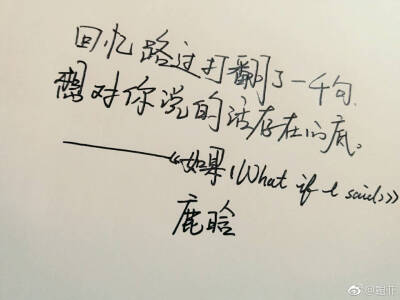 回忆路过打翻了一千句
想对你说的话存在心底。
——《如果(What if I said)》
鹿晗